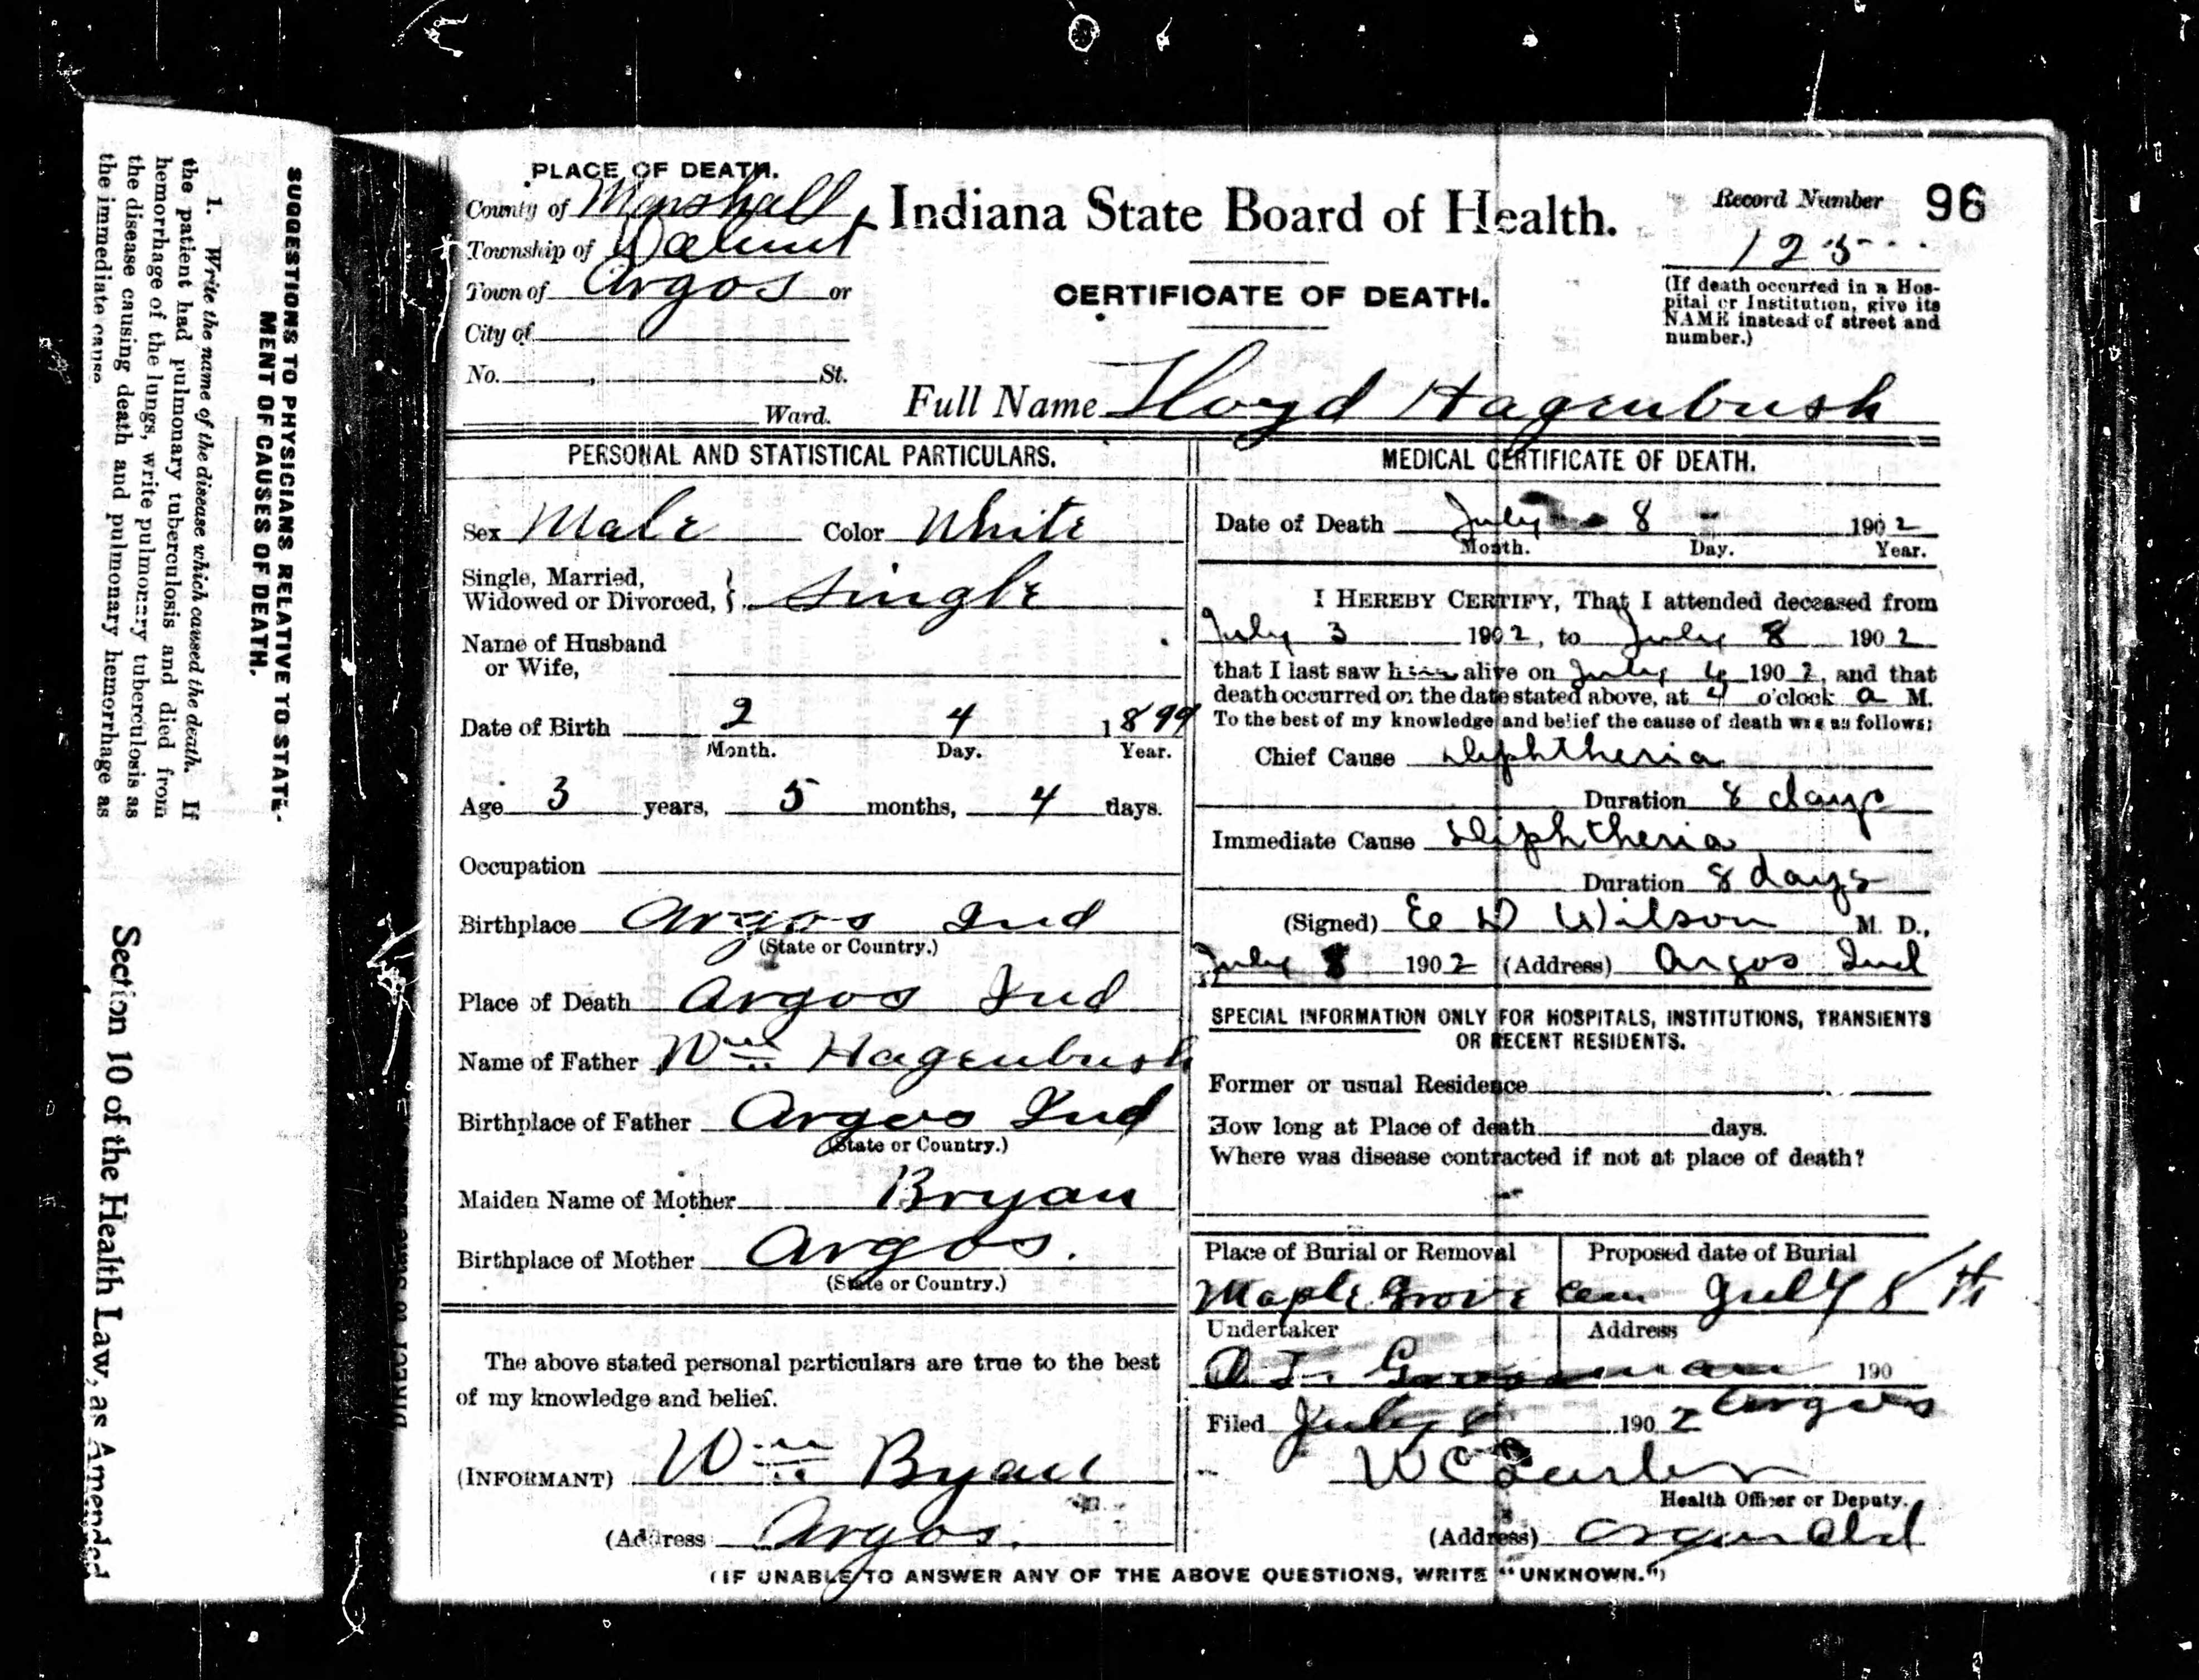 SUGGESTIONS TO PHYSICIANS RELATIVE TO STATE-
MENT OF CAUSES OF DEATH.
1. Write the name of the disease which caused the death. If
the patient had pulmonary tuberculosis and died from
hemorrhage of the lungs, write pulmonary tuberculosis as
the disease causing death and pulmonary hemorrhage as
the immediate cause
Section 10 of the Health Law, as Amended
PLACE OF DEATH.
County of Marshall
Township of Walnut
Town of Argos or
City of
No. , St.
Ward.
Indiana State Board of Health.
CERTIFICATE OF DEATH.
Record Number 96
125
(If death occurred in a Hos-
pital or Institution, give its
NAME instead of street and
number.)
Full Name Floyd Hagenbush
PERSONAL AND STATISTICAL PARTICULARS.
Sex Male Color White
Single, Married,
Widowed or Divorced, } Single
Name of Husband
or Wife,
Date of Birth 2 4 1899
Month. Day. Year.
Age 3 years, 5 months, 4 days.
Occupation
Birthplace Argos Ind
(State or Country.)
Place of Death Argos Ind
Name of Father Wm Hagenbush
Birthplace of Father Argos Ind
(State or Country.)
Maiden Name of Mother Bryan
Birthplace of Mother Argos.
(State or Country.)
The above stated personal particulars are true to the best
of my knowledge and belief.
(INFORMANT) Wm Byan
(Address Argos.
MEDICAL CERTIFICATE OF DEATH.
Date of Death July 8 1902
Month. Day. Year.
I HEREBY CERTIFY, That I attended deceased from
July 3 1902, to July 8 1902
that I last saw him alive on July 6 1902, and that
death occurred on the date stated above, at 4 o'clock a M.
To the best of my knowledge and belief the cause of death was as follows:
Chief Cause Diphtheria
Duration 8 days
Immediate Cause Diphtheria
Duration 8 days
(Signed) E D Wilson M. D.,
July 8 1902 (Address) Argos Ind
SPECIAL INFORMATION ONLY FOR HOSPITALS, INSTITUTIONS, TRANSIENTS
OR RECENT RESIDENTS.
Former or usual Residence
How long at Place of death days.
Where was disease contracted if not at place of death?
Place of Burial or Removal Proposed date of Burial
Maple Grove Cem July 8th
Undertaker Address
190
Argos
Filed July 8 1902
Health Officer or Deputy.
(Address)
(IF UNABLE TO ANSWER ANY OF THE ABOVE QUESTIONS, WRITE "UNKNOWN.")